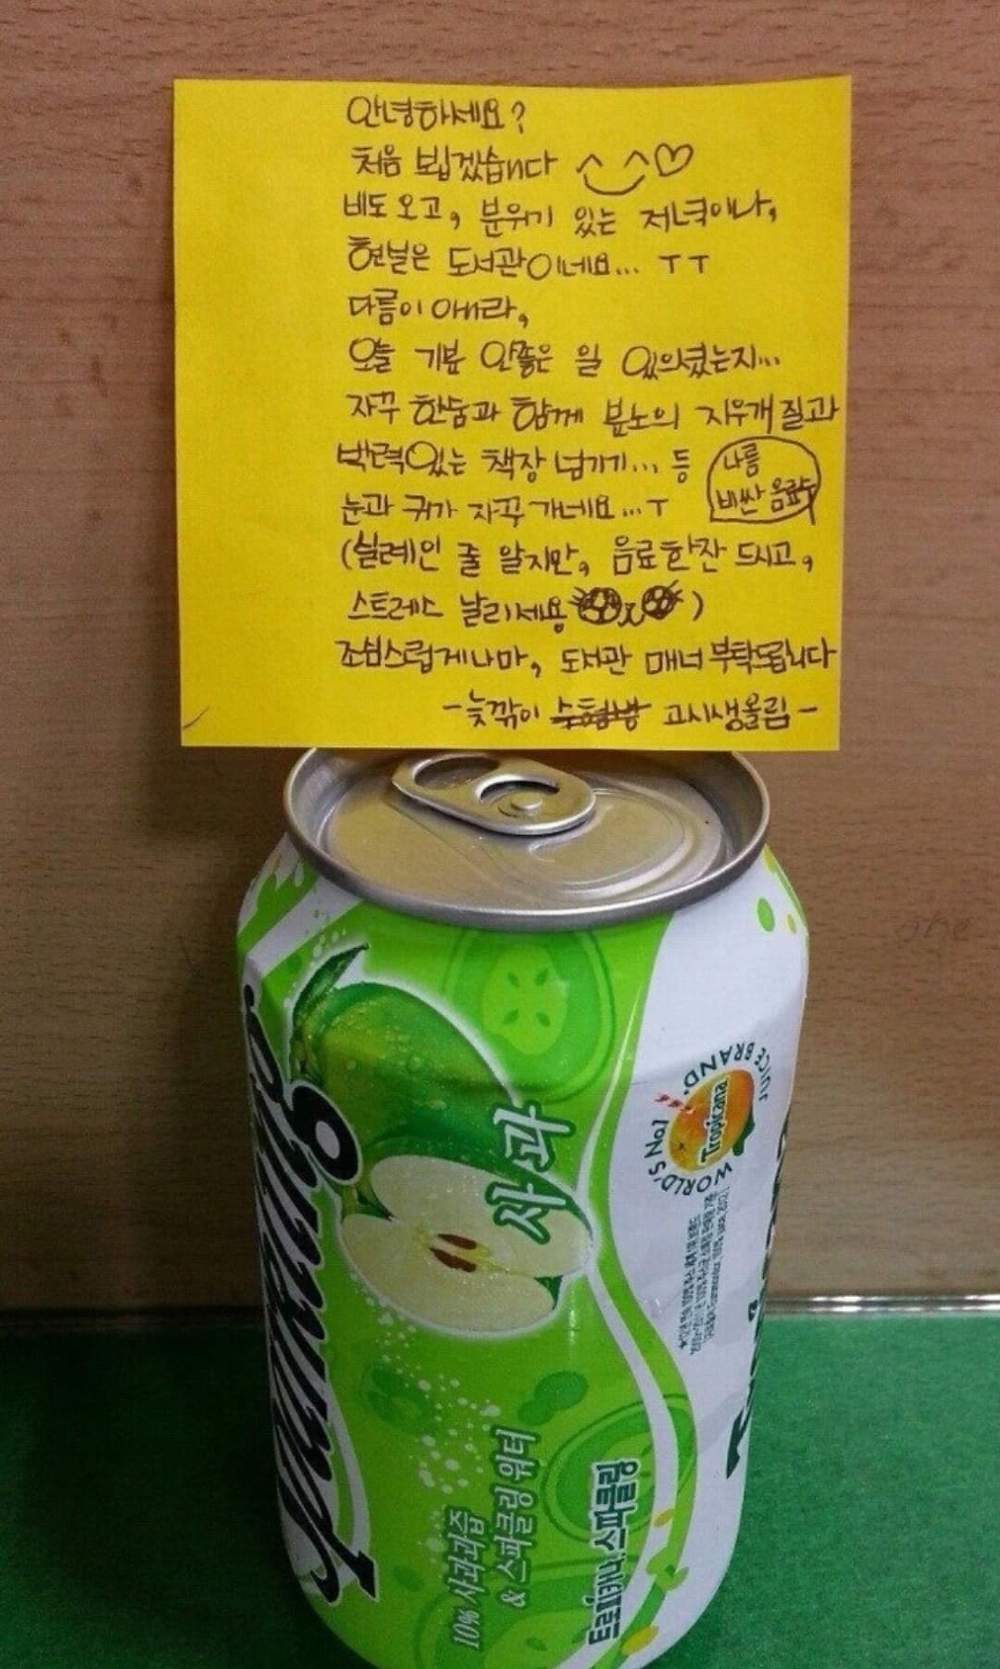 안녕하세요?
처음 뵙겠습니다 ^ ^♡
비도 오고, 분위기 있는 저녁이나,
현실은 도서관이네요... ㅜㅜ
다름이 아니라,
오늘 기분 안좋은 일 있으셨는지...
자꾸 한숨과 함께 분노의 지우개질과
박력있는 책장 넘기기... 등
나름
비싼 음료수
눈과 귀가 자꾸 가네요...ㅜ
(실례인 줄 알지만, 음료한잔 드시고,
스트레스 날리세용 )
조심스럽게나마, 도서관 매너 부탁드립니다
-늦깎이 고시생올림-
Sparkling
사과
10% 사과과즙
& 스파클링 워터
트로피카나 스파클링
WORLD'S No.1 JUICE BRAND.
Tropicana